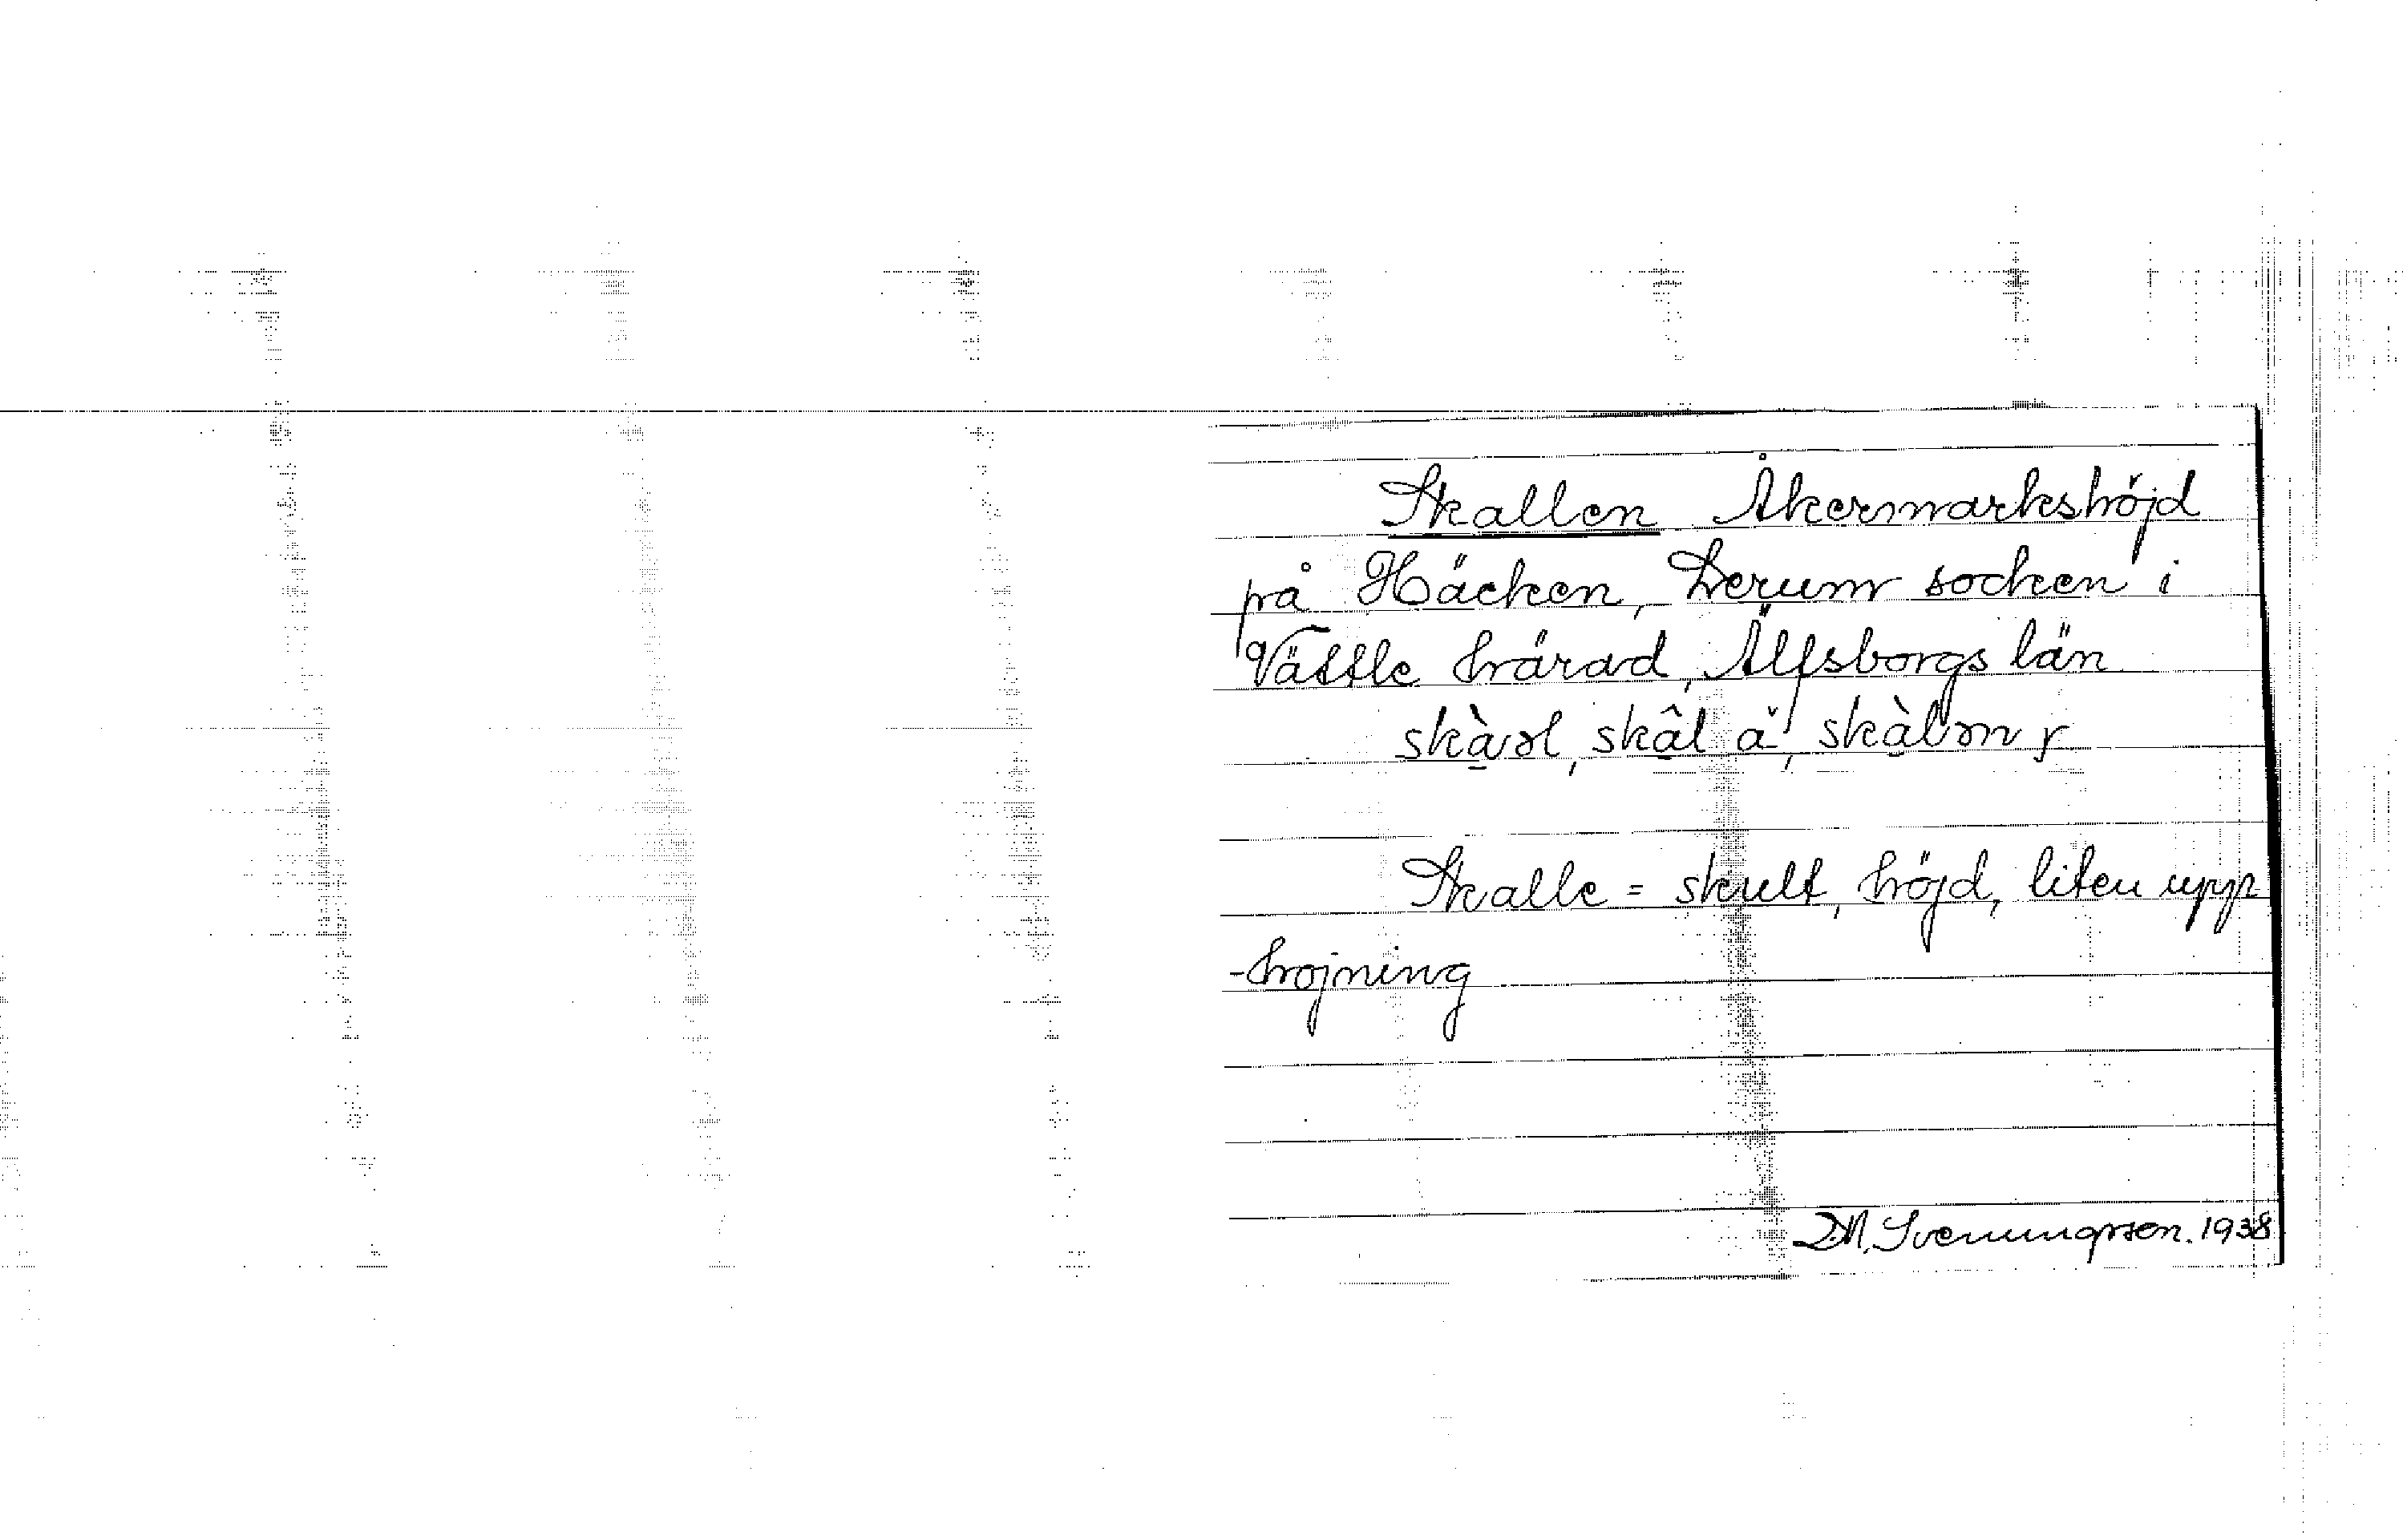 Skallen Åkermarkshöjd
på Häcken, Lerum socken i
Vättle härad, Älfsborgs län
Skalle = skult, höjd, liten upp
-hojning
D.M. Svenungsson. 1938